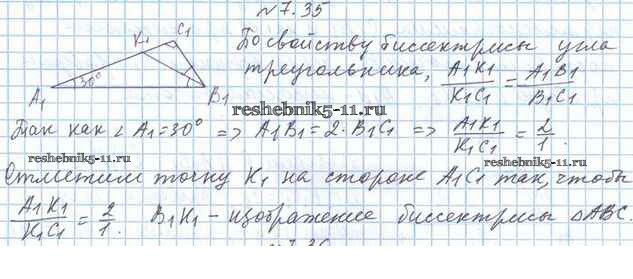 № 7.35
K1 C1
По свойству биссектрисы угла
треугольника, A1K1/K1C1 = A1B1/B1C1
30°
A1 B1
reshebnik5-11.ru
Так как ∠A1=30° => A1B1=2·B1C1 => A1K1/K1C1 = 2/1.
reshebnik5-11.ru reshebnik5-11.ru
Отметим точку K1 на стороне A1C1 так, чтобы
A1K1/K1C1 = 2/1. B1K1 - изображение биссектрисы ΔABC.